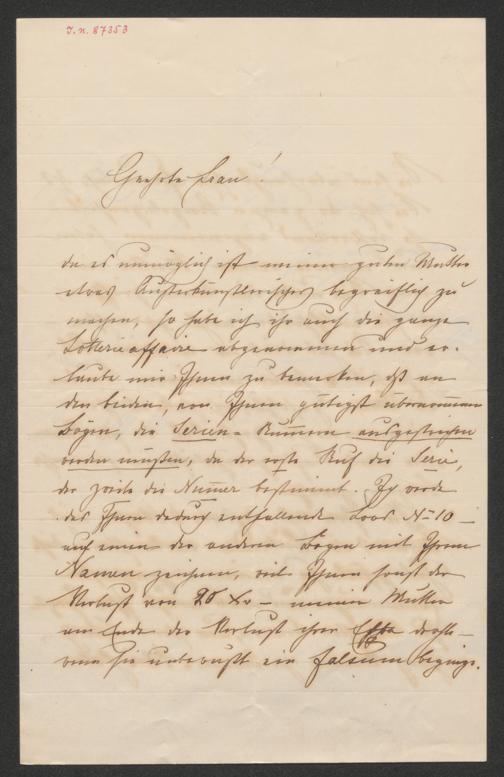 I. N. 87353
Geehrte Frau!
da es unmöglich ist meiner guten Mutter
etwas begreiflich zu
machen, so habe ich ihr auch die ganze
Lotterieaffaire abgenommen und er-
laube mir Ihnen zu bemerken, dß an
den beiden, von Ihnen gütigst übernommenen
Bögen, die Serien-Numern ausgestrichen
werden müßen, da der erste Ruf die Serie,
der zweite die Numer bestimmt. Ich werde
das Ihnen dadurch entfallende Loos No 10 –
auf einen der anderen Bogen mit Ihrem
Namen zeichnen, weil Ihnen sonst der
Verlust von 20 Xr – meiner Mutter
am Ende der Verlust ihrer drohte –
wenn sie unbewußt ein falsum begienge.